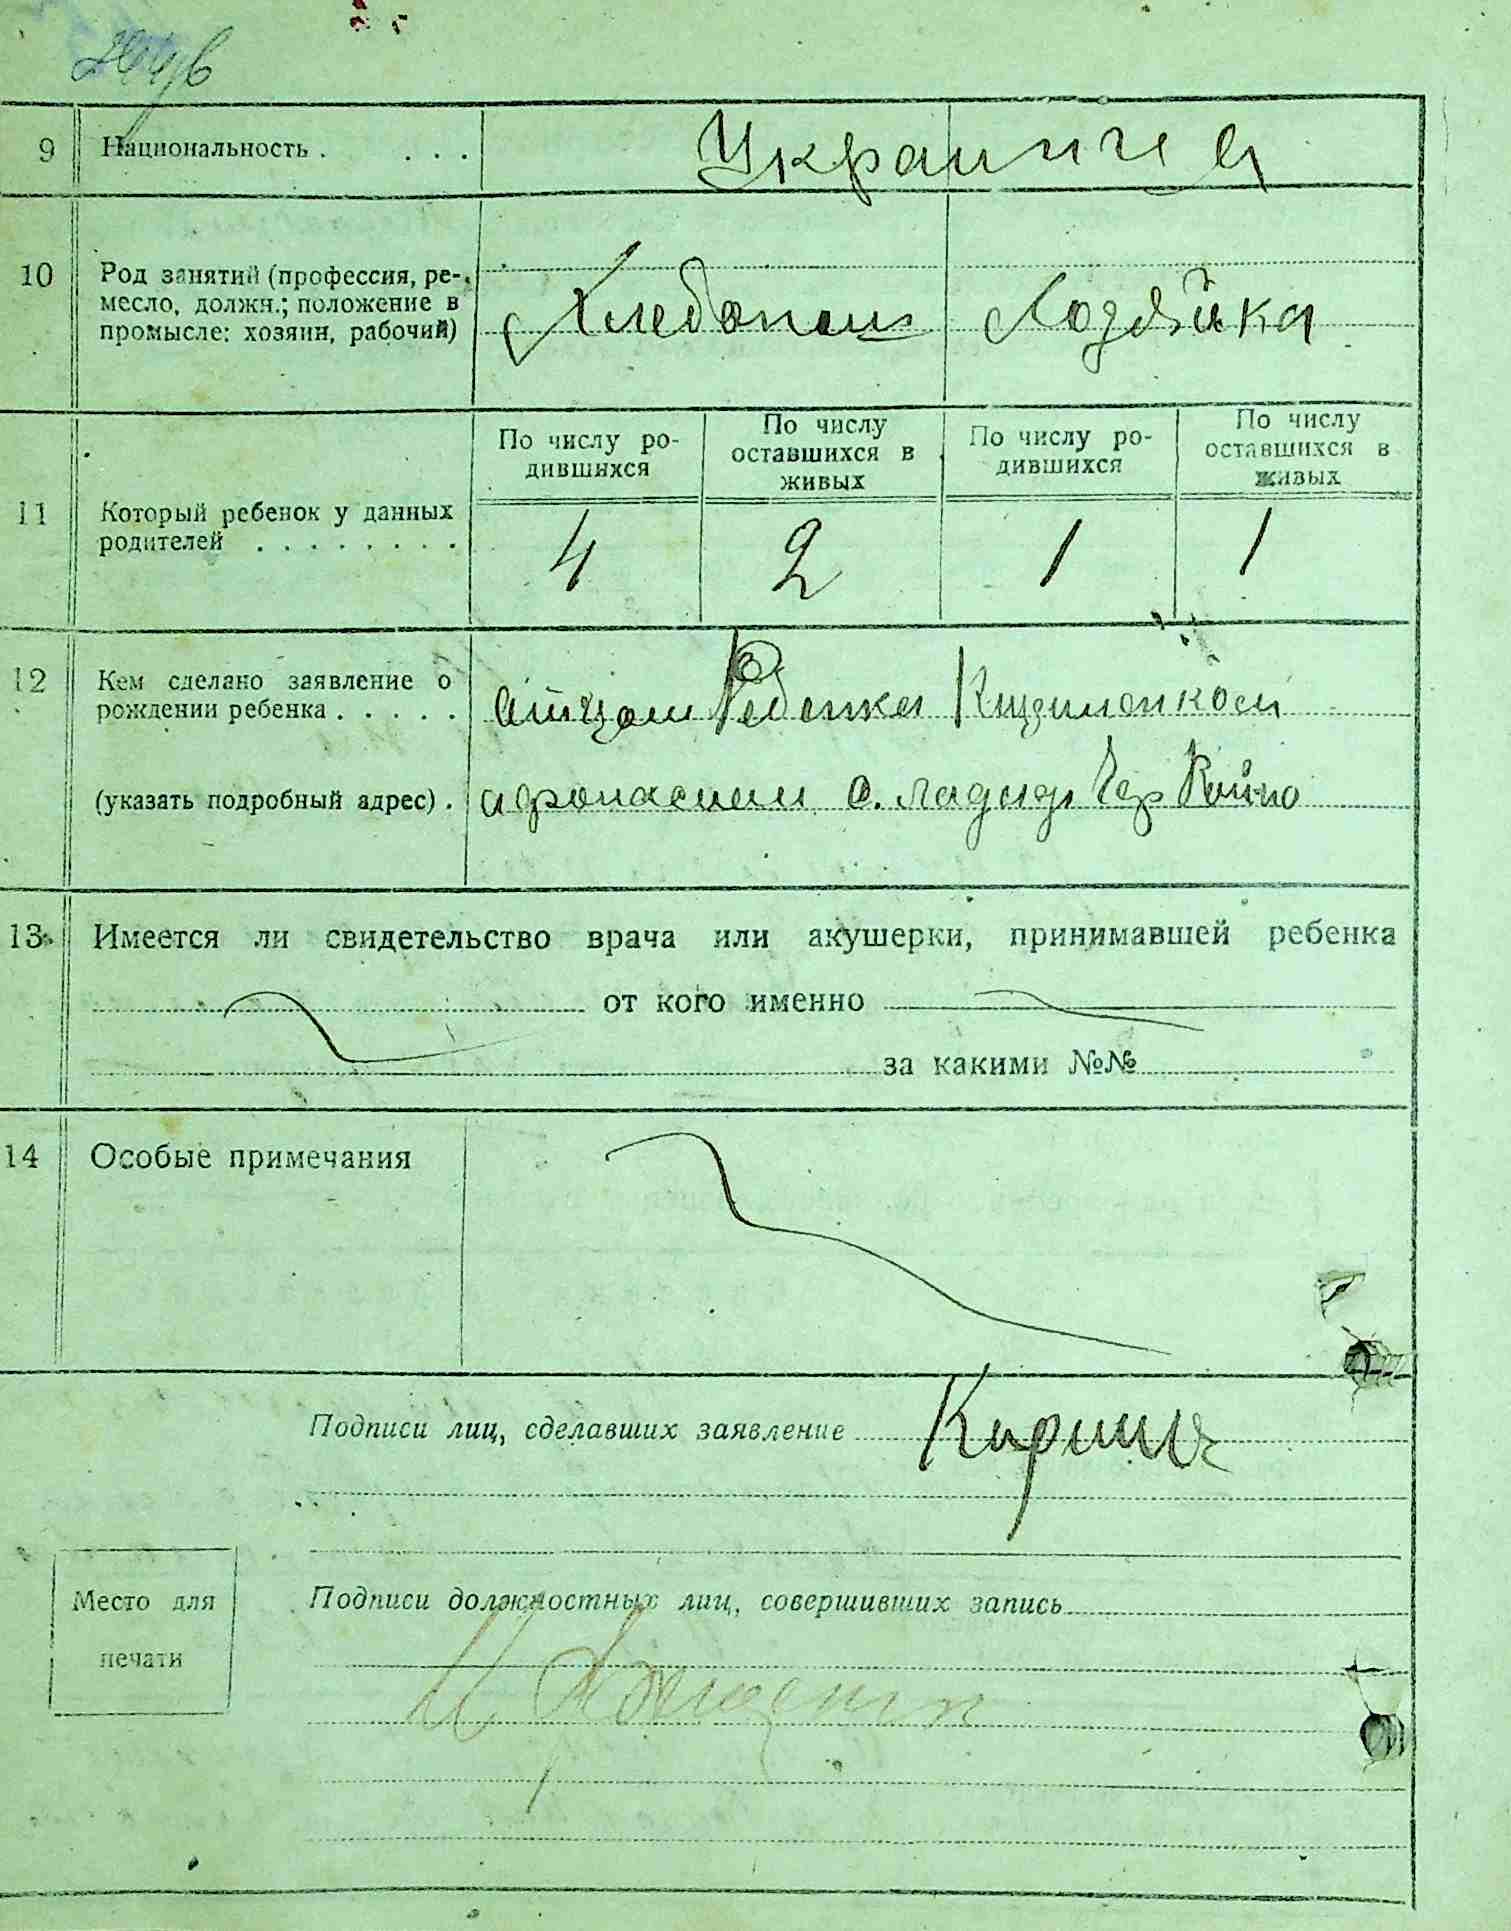 9 Национальность . . . . Украинцы
10 Род занятий (профессия, ре-
месло, должн.; положение в
промысле: хозяин, рабочий)
Хлебопаш Хозяйка
По числу ро-
дившихся
По числу
оставшихся в
живых
По числу ро-
дившихся
По числу
оставшихся в
живых
11 Который ребенок у данных
родителей . . . . . . . .
4 2 1 1
12 Кем сделано заявление о
рождении ребенка . . . . .
(указать подробный адрес) .
Атцом Ребенка
с.
13 Имеется ли свидетельство врача или акушерки, принимавшей ребенка
от кого именно
за какими №№
14 Особые примечания
Подписи лиц, сделавших заявление
Место для
печати
Подписи должностных лиц, совершивших запись